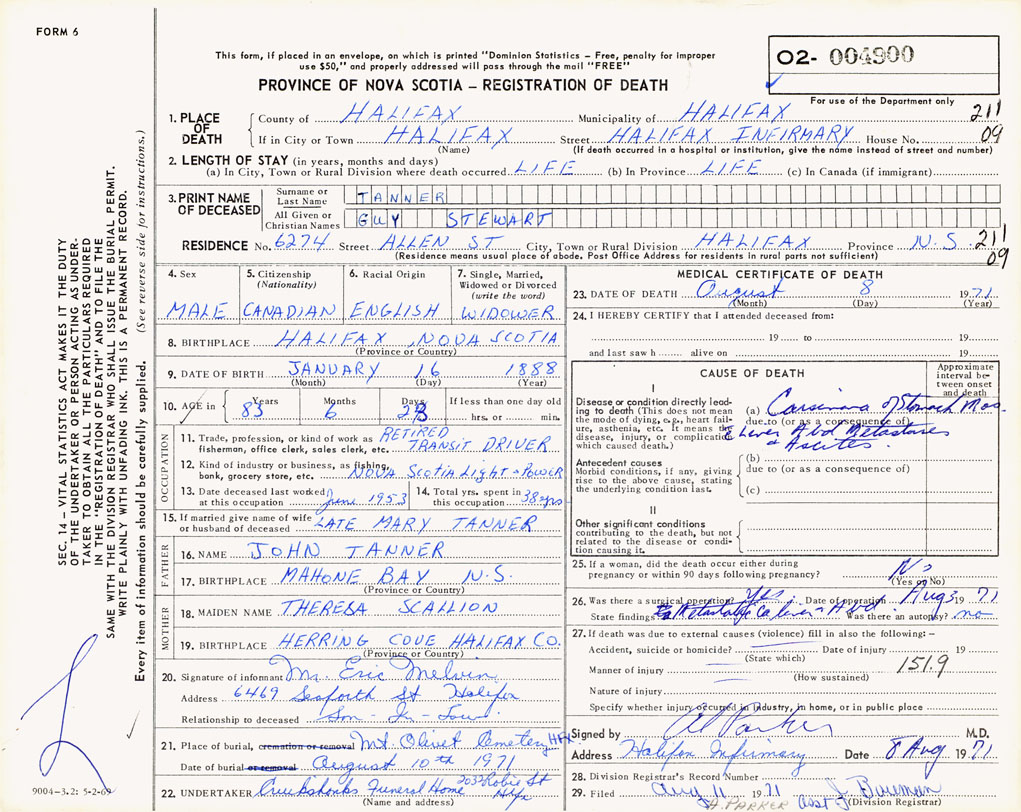 FORM 6
This form, if placed in an envelope, on which is printed "Dominion Statistics – Free, penalty for improper
use $50," and properly addressed will pass through the mail "FREE"
02- 004900
PROVINCE OF NOVA SCOTIA – REGISTRATION OF DEATH
For use of the Department only
1. PLACE OF DEATH
County of HALIFAX Municipality of HALIFAX 211
If in City or Town HALIFAX Street HALIFAX INFIRMARY House No. 09
(Name) (If death occurred in a hospital or institution, give the name instead of street and number)
2. LENGTH OF STAY (in years, months and days)
(a) In City, Town or Rural Division where death occurred LIFE (b) In Province LIFE (c) In Canada (if immigrant)
3. PRINT NAME OF DECEASED
Surname or Last Name TANNER
All Given or Christian Names GUY STEWART
RESIDENCE No. 6274 Street ALLEN ST City, Town or Rural Division HALIFAX Province N.S. 211
(Residence means usual place of abode. Post Office Address for residents in rural parts not sufficient) 09
4. Sex
MALE
5. Citizenship (Nationality)
CANADIAN
6. Racial Origin
ENGLISH
7. Single, Married, Widowed or Divorced (write the word)
WIDOWER
8. BIRTHPLACE HALIFAX, NOVA SCOTIA
(Province or Country)
9. DATE OF BIRTH JANUARY 16 1888
(Month) (Day) (Year)
10. AGE in Years Months Days If less than one day old
83 6 23 hrs. or min.
OCCUPATION
11. Trade, profession, or kind of work as fisherman, office clerk, sales clerk, etc. RETIRED TRANSIT DRIVER
12. Kind of industry or business, as fishing, bank, grocery store, etc. NOVA SCOTIA LIGHT & POWER
13. Date deceased last worked at this occupation June 1953
14. Total yrs. spent in this occupation 38 yrs
15. If married give name of wife or husband of deceased LATE MARY TANNER
FATHER
16. NAME JOHN TANNER
17. BIRTHPLACE MAHONE BAY N.S.
(Province or Country)
MOTHER
18. MAIDEN NAME THERESA SCALLION
19. BIRTHPLACE HERRING COVE HALIFAX CO.
(Province or Country)
20. Signature of informant Mr. Eric Melvin
Address 6469 Seaforth St Halifax
Relationship to deceased Son-In-Law
21. Place of burial, cremation or removal Mt. Olivet Cemetery HFX
Date of burial or removal August 10th 1971
22. UNDERTAKER Cruikshanks Funeral Home 2032 Robie St Hfx
(Name and address)
MEDICAL CERTIFICATE OF DEATH
23. DATE OF DEATH August 8 1971
(Month) (Day) (Year)
24. I HEREBY CERTIFY that I attended deceased from:
19 to 19
and last saw h alive on 19
CAUSE OF DEATH
Approximate interval between onset and death
I
Disease or condition directly leading to death (This does not mean the mode of dying, e.g., heart failure, asthenia, etc. It means the disease, injury, or complication which caused death.)
(a) Carcinoma of Stomach
due to (or as a consequence of)
Liver Abd Metastases
Ascites
Antecedent causes
Morbid conditions, if any, giving rise to the above cause, stating the underlying condition last.
(b)
due to (or as a consequence of)
(c)
II
Other significant conditions contributing to the death, but not related to the disease or condition causing it.
25. If a woman, did the death occur either during pregnancy or within 90 days following pregnancy? No
(Yes or No)
26. Was there a surgical operation? Yes. Date of operation Aug 3 1971
State findings Metastatic Ca liver & Abd Was there an autopsy? no
27. If death was due to external causes (violence) fill in also the following:–
Accident, suicide or homicide? Date of injury 19
(State which)
Manner of injury 151.9
(How sustained)
Nature of injury
Specify whether injury occurred in industry, in home, or in public place
Signed by Al Parker M.D.
Address Halifax Infirmary Date 8 Aug 1971
28. Division Registrar's Record Number
29. Filed Aug 11 1971 Asst J. Bowman
H. PARKER (Division Registrar)
SEC. 14 – VITAL STATISTICS ACT MAKES IT THE DUTY
OF THE UNDERTAKER OR PERSON ACTING AS UNDER-
TAKER TO OBTAIN ALL THE PARTICULARS REQUIRED
IN THE "REGISTRATION OF DEATH" AND TO FILE THE
SAME WITH THE DIVISION REGISTRAR WHO SHALL ISSUE THE BURIAL PERMIT.
WRITE PLAINLY WITH UNFADING INK. THIS IS A PERMANENT RECORD.
Every item of information should be carefully supplied. (See reverse side for instructions.)
9004–3.2: 5-2-69